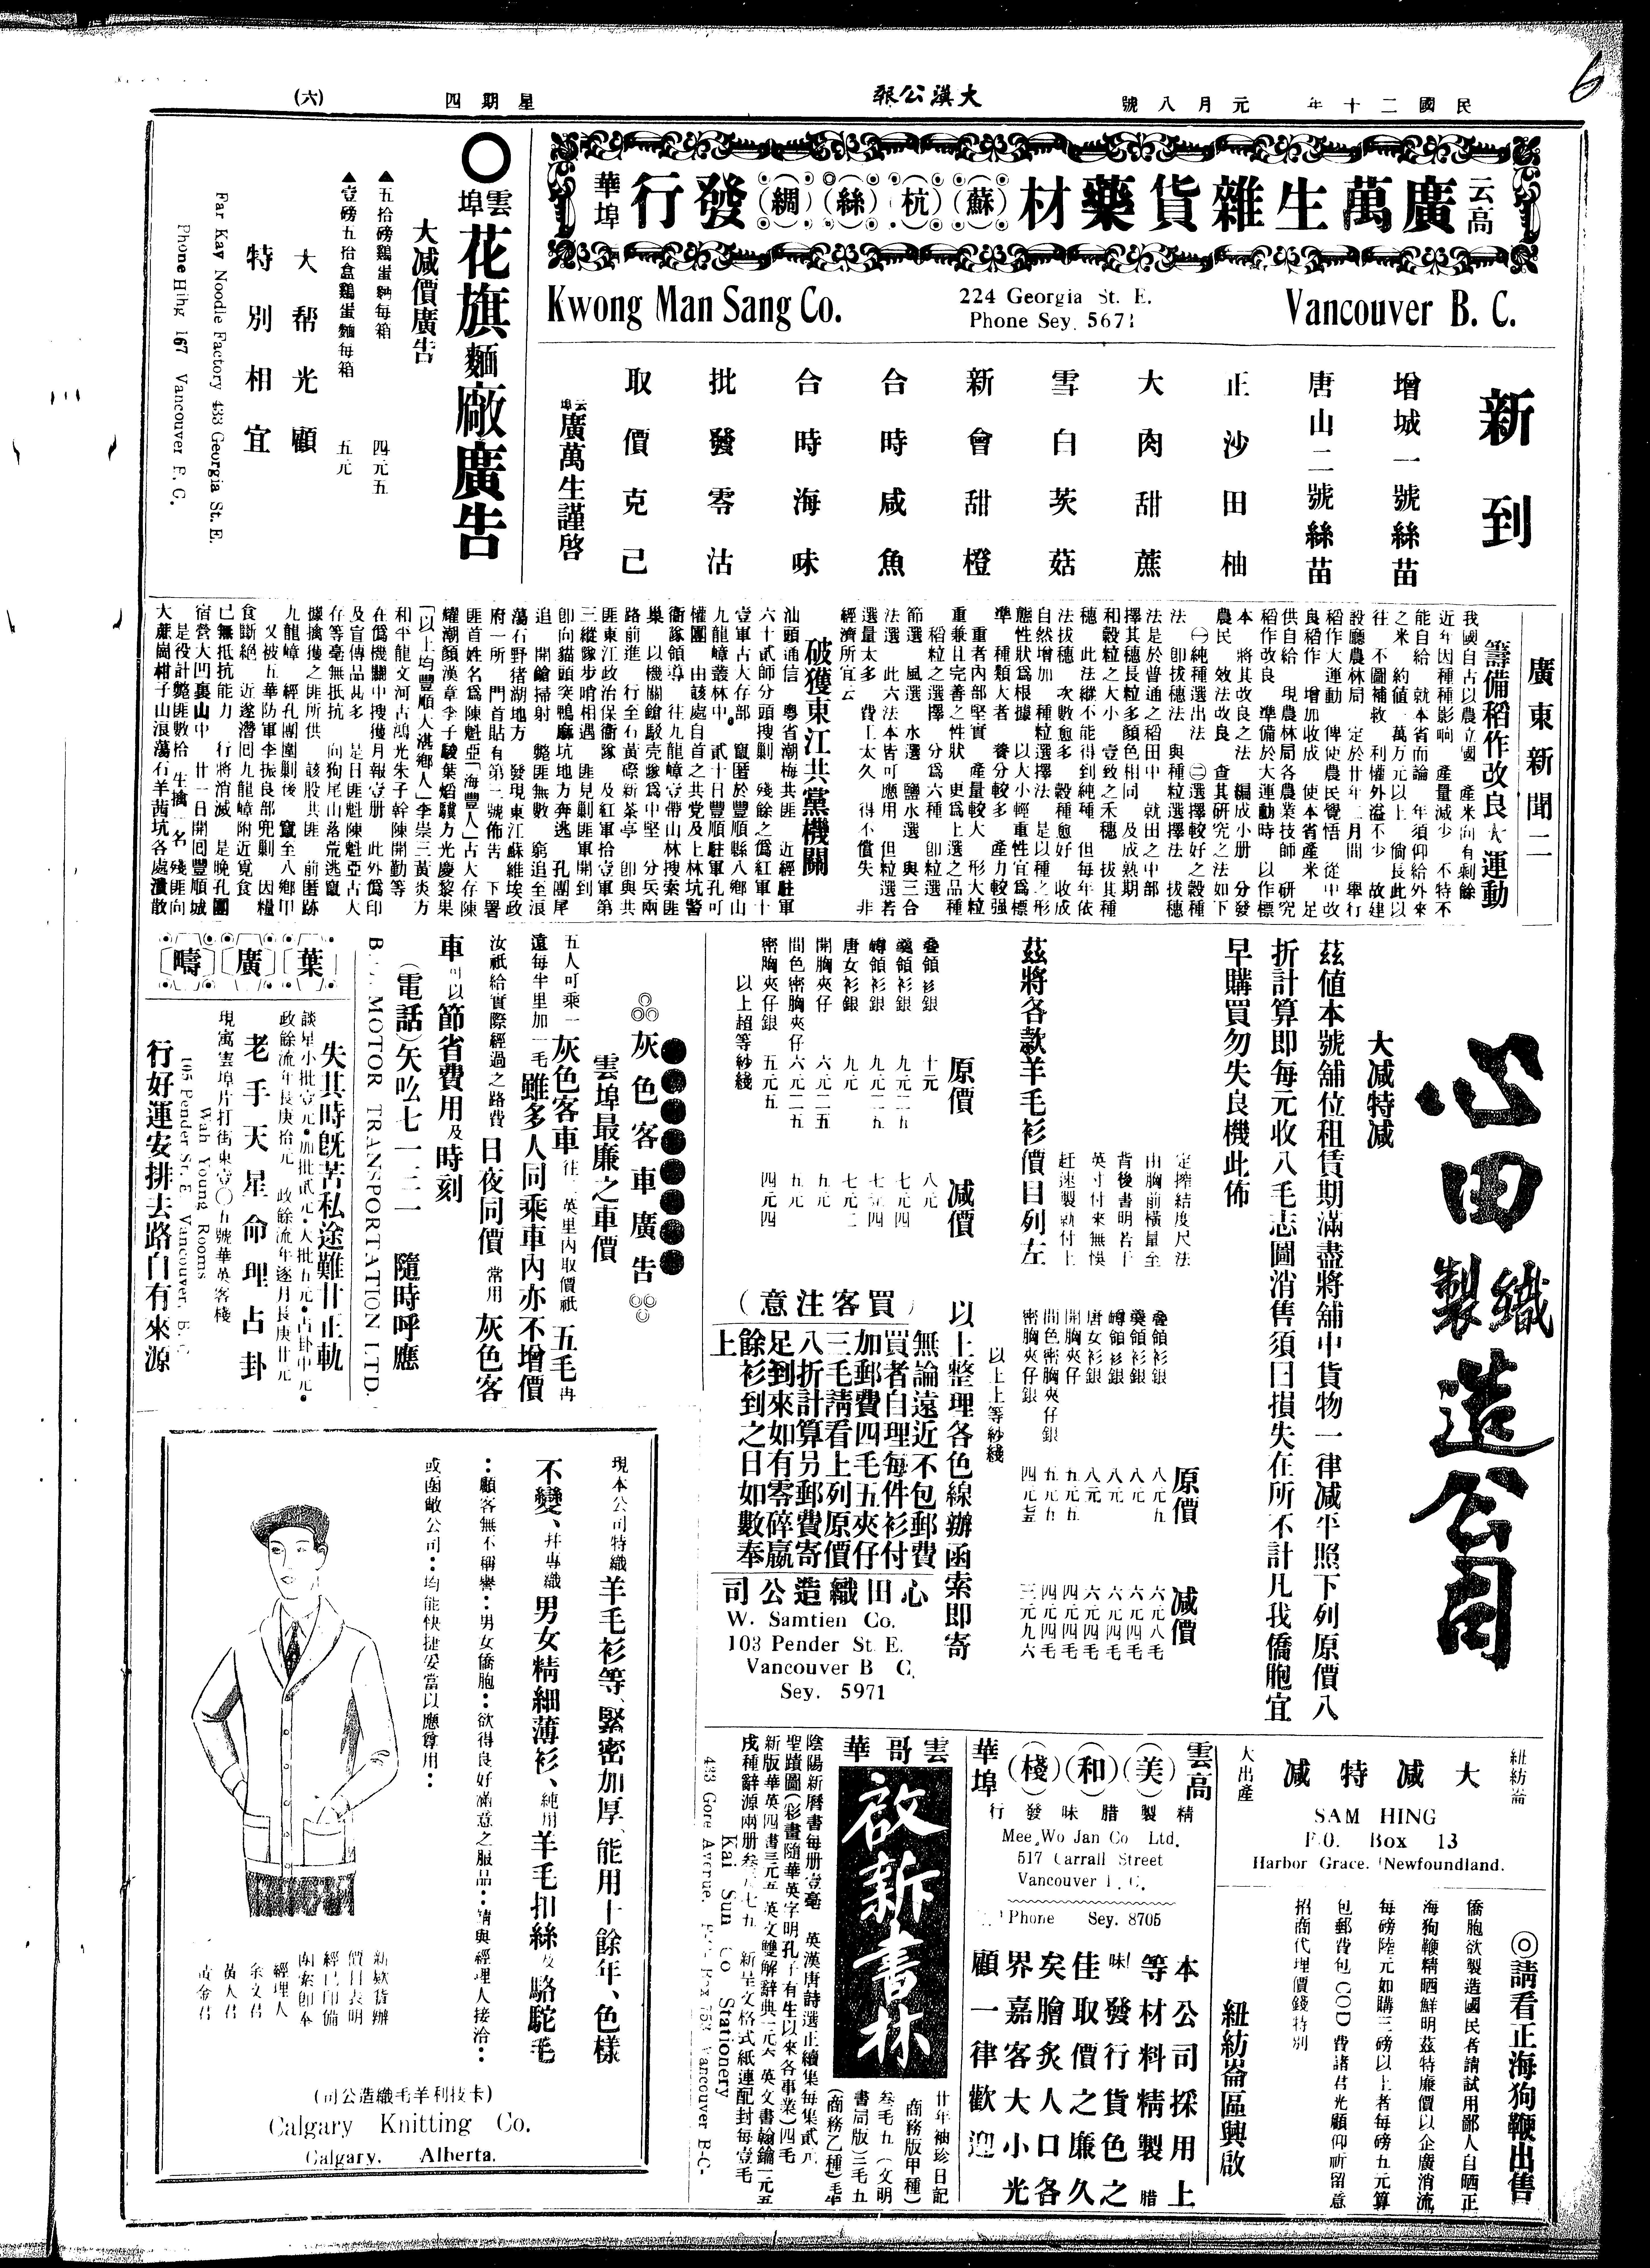 民國二十年 元月八號
大漢公報
星期四
(六)
6
云高
廣萬生雜貨藥材
(蘇)(杭)(絲)(綢)
發行
華埠
Kwong Man Sang Co.
224 Georgia St. E.
Phone Sey. 5671
Vancouver B. C.
新到
增城一號絲苗
唐山二號絲苗
正沙田柚
大肉甜蔗
雪白茨菇
新會甜橙
合時咸魚
合時海味
批發零沽
取價克己
云埠廣萬生謹啓
雲埠花旗麵廠廣告
大减價廣告
▲五拾磅鷄蛋麵每箱 四元五
▲壹磅五拾盒鷄蛋麵每箱 五元
大帮光顧
特別相宜
Far Kay Noodle Factory 433 Georgia St. E.
Phone Hihg 167 Vancouver B. C.
廣東新聞二
籌備稻作改良大運動
我國自古以農立國 產米向有剩餘
近年因種種影响 產量减少 不特不
能自給 就本省而論 年須仰給外來
之米 約値一萬萬元以上 倘長此以
往 不圖補救 利權外溢不少 故建
設廳農林局 定於廿年二月間 舉行
稻作大運動 俾使農民覺悟 從中改
良稻作 增加收成 使本省產米 足
供自給 現農林局各農業技師 研究
稻作改良 準備於大運動時 以作標
本 將其改良之法 編成小册 分發
農民 效法改良 查其研究之法如下
㊀純種選出法 ㊁選擇較好之穀種
法 卽拔穗法 與種粒選擇法 拔穗
法是於普通之稻田中 就田之中部
擇其穗長粒多顏色相同 及成熟期
和穀粒之大小 壹致之禾穗 拔其種
穗 此法縱不能得到純種 但每年依
法拔穗 次數愈多 穀種愈好 收成
自然增加 種粒選擇法 是以種之形
態性狀爲根據 以大小輕重性宜爲標
準 種類大者 養分較多 產力較强
重者內部堅實 產量較大 形大粒
重兼且完善之性狀 更爲上選之品種
稻粒之選擇 分爲六種 卽粒選
節選 風選 水選 鹽水選 與三合
法選 此六法本皆可應用 但粒選若
選量太多 費工太久 得不償失 非
經濟所宜云
破獲東江共黨機關
汕頭通信 粵省潮梅共匪 近經駐軍
六十貳師分頭搜剿 殘餘之僞紅軍十
壹軍古大存部 竄匿於豐順縣八鄉山
九龍嶂叢林中 貳十日豐順駐軍孔可
權團 由該處自首之共党及上林坑警
衛隊領導 往九龍嶂壹帶山林搜索匪
巢 以機關鎗駁壳隊爲中堅 分兵兩
路前進 行至石黃磜新茶亭 卽與共
匪東江政治保衛隊 及紅軍拾壹軍第
三縱隊步哨相遇 匪見剿匪軍開到
卽向貓頭突鴨蔴坑地方奔逃 孔團尾
追 開鎗掃射 斃匪無數 窮追至浪
蕩石野猪湖地方 發現東江蘇維埃政
府一所 門首貼有第二號佈告 下署
匪首姓名爲陳魁亞「海豐人」古大存陳
耀潮顏漢章李子駿葉焰驥方光慶黎果
「以上均豐順人湛鄉人」李崇三黃炎方
和平龍文河古鴻光朱子幹陳開勤等
在僞機關中搜獲月報壹册 此外僞印
及盲傳品甚多 是日匪魁陳魁亞古大
存等毫無抵抗 向狗尾山落荒逃竄
據擒獲之匪所供 該股共匪 前匿跡
九龍嶂 經孔團圍剿後 竄至八鄉中
又被五華防軍李振良部兜剿 因糧
食斷絕 近遂潛囘九龍嶂附近覓食
已無抵抗能力 行將消滅 是晚孔團
宿營大凹裏山中 廿一日開囘豐順城
是役計斃匪數拾 生擒一名 殘匪向
大蔗崗柑子山浪蕩石羊茜坑各處潰散
心田織製造公司
大减特减
茲値本號舖位租賃期滿盡將舖中貨物一律减平照下列原價八
折計算即每元收八毛志圖消售須日損失在所不計凡我僑胞宜
早購買勿失良機此佈
定搾結度尺法
由胸前橫量至
背後書明若干
英寸付來無悞
赶速製就付上
茲將各款羊毛衫價目列左
原價 减價
叠領衫銀 十元 八元
八元
唐女衫銀 九元
開胸夾仔 六元二五 五元
間色密胸夾仔 六元二五 五元
密胸夾仔銀 五元五 四元四
以上超等紗綫
原價 减價
叠領衫銀 八元五 六元八毛
八元 六元四毛
唐女衫銀 八元 六元四毛
開胸夾仔 五元五 四元四毛
間色密胸夾仔銀 五元五 四元四毛
密胸夾仔銀 三元九六
以上上等紗綫
以上整理各色線辦函索即寄
(買客注意)
無論遠近不包郵費
買者自理每件衫付
加郵費四毛五夾仔
三毛請看上列原價
八折計算另郵費寄
足到來如有零碎嬴
餘衫到之日如數奉
上
心田織造公司
W. Samtien Co.
103 Pender St. E.
Vancouver B C.
Sey. 5971
灰色客車廣告
雲埠最廉之車價
五人可乘一灰色客車往一英里內取價祇五毛再
遠每半里加一毛雖多人同乘車內亦不增價
汝祇給實際經過之路費日夜同價常用灰色客
車可以節省費用及時刻
(電話)矢吆七一三一 隨時呼應
MOTOR TRANSPORTATION LTD.
葉廣疇
失其時旣苦私途難廿止軌
談星小批壹元•加批貳元•大批五元•占卦中元•
政餘流年長庚拾元 政餘流年逐月長庚廿元
老手天星命理占卦
現寓雲埠片打街東壹〇五號華英客棧
Wah Young Rooms
105 Pender St. E. Vancouver, B. C.
行好運安排去路自有來源
現本公司特織羊毛衫等、緊密加厚、能用十餘年、色樣
不變、幷專織男女精細薄衫、純用羊毛扣絲及駱駝毛
：顧客無不稱譽：男女僑胞：欲得良好滿意之服品：請與經理人接洽：
或函敝公司：均能快捷妥當以應尊用：
新欵貨辦
價目表明
經已印備
函索即奉
經理人
余文君
黃人君
黃金君
(卡技利羊毛織造公司)
Calgary Knitting Co.
Calgary, Alberta.
雲哥華
啟新書林
廿年袖珍日記
(商務版甲種)
叁毛九 (文明
書局版)三毛五
陰陽新曆書每册壹毫 英漢唐詩選正續集每集貳元
聖蹟圖(彩畫隨華英字明孔子有生以來各事業)四毛
新版華英四書三元五 英文雙解辭典一元六 英文書翰鑰一元五
Kai Sun Co Stationery
433 Gore Avenue. Vancouver B-C-
雲高
(美)(和)(棧)
華埠
精製腊味發行
Mee Wo Jan Co Ltd.
517 Carrall Street
Vancouver B. C.
Phone Sey. 8705
本公司採用上
等材料精製腊
味發行貨色之
佳取價之廉久
矣膾炙人口各
界嘉客大小光
顧一律歡迎
紐紡崙
大减特减
大出產
SAM HING
P.O. Box 13
Harbor Grace. Newfoundland.
◎請看正海狗鞭出售
僑胞欲製造國民者請試用鄙人自晒正
海狗鞭精晒鮮明茲特廉價以企廣消流
每磅陸元如購三磅以上者每磅五元算
包郵費包COD費諸君光顧仰祈留意
招商代理價錢特別
紐紡崙區興啟